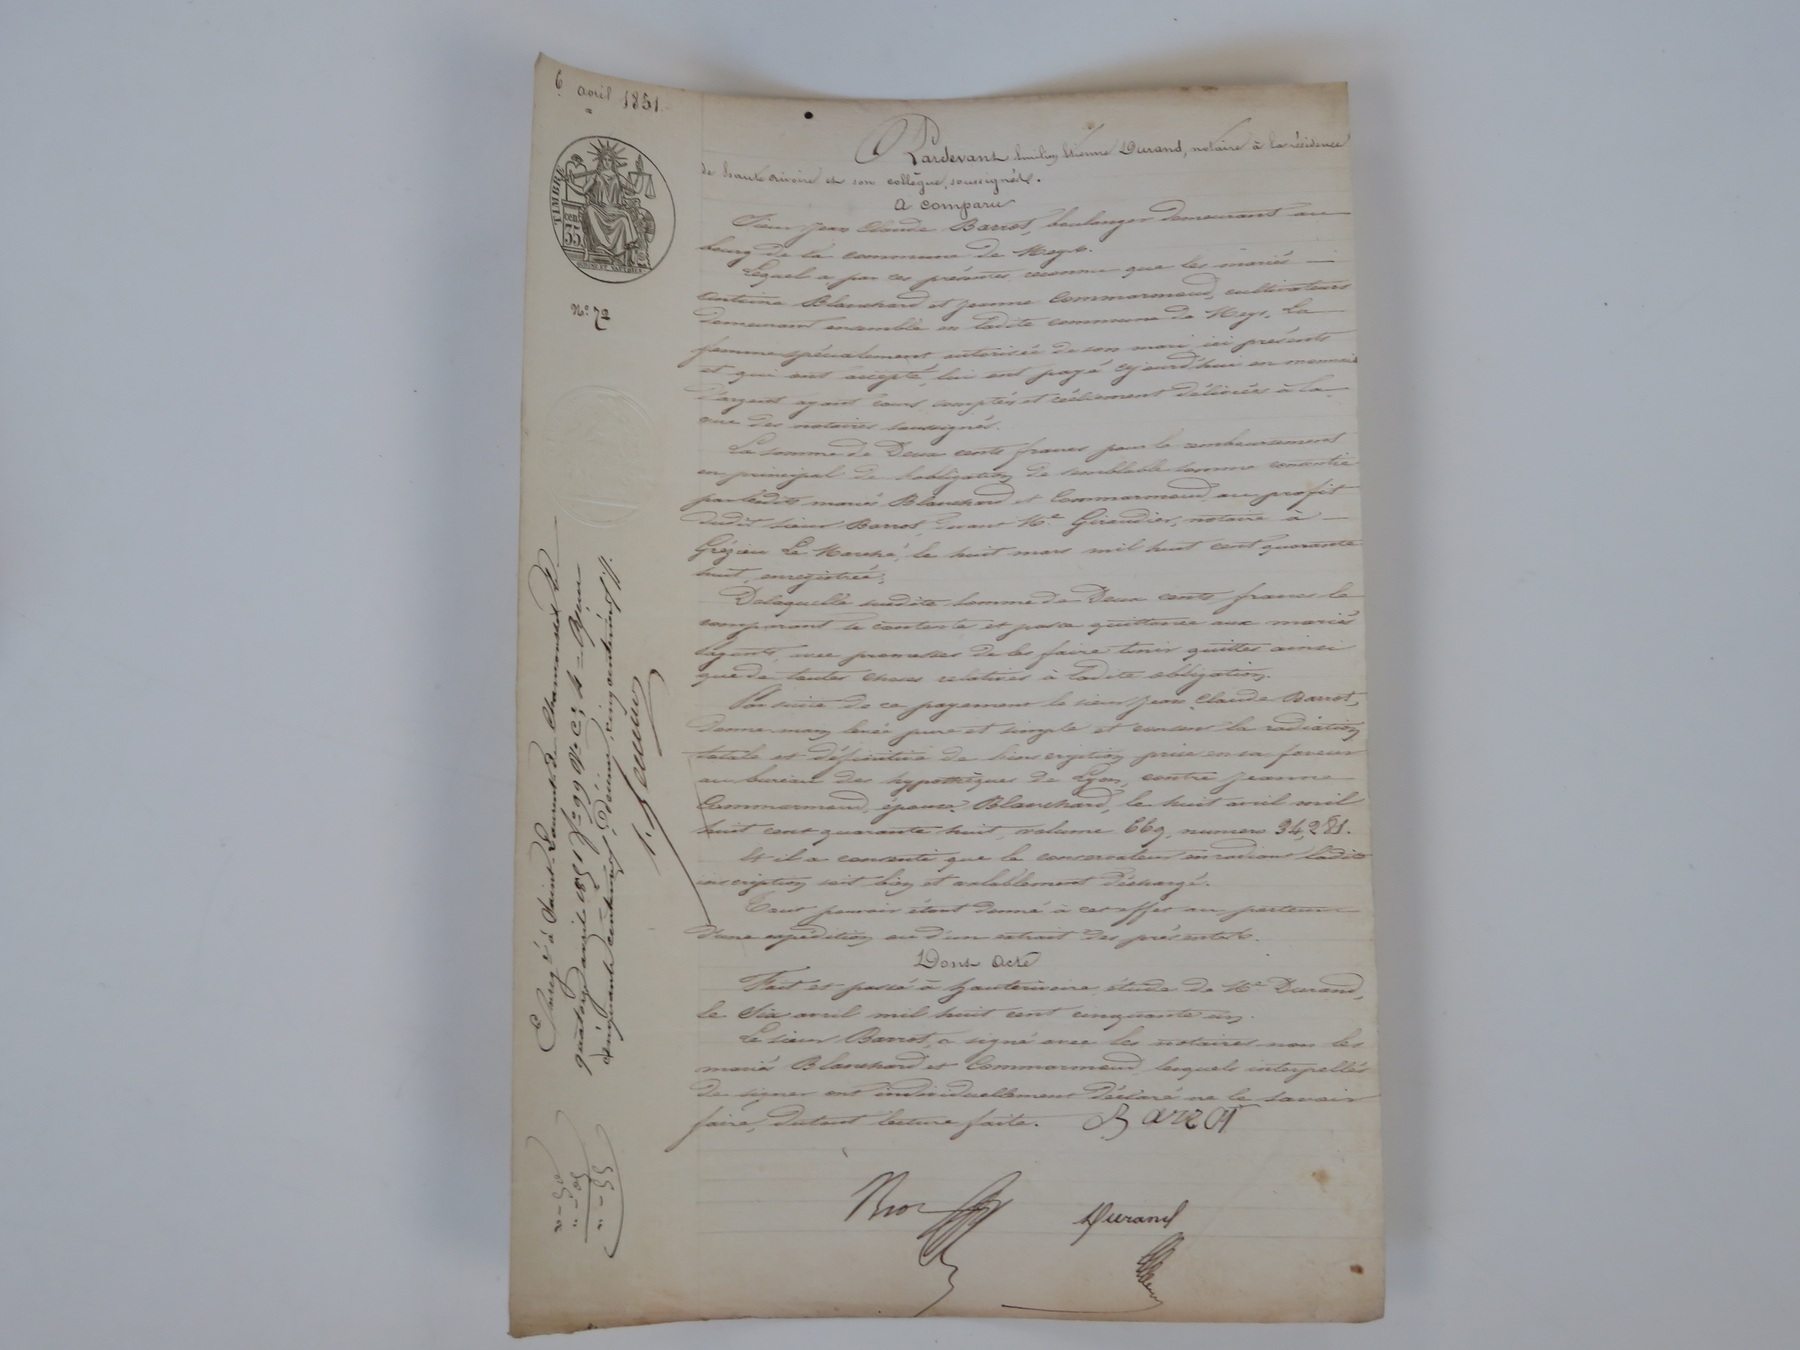 6 avril 1851.
TIMBRE
35 cent
No 72
Pardevant Emilien Etienne Durand, notaire à la résidence
de hauterivoire et son collègue, soussignés.
A comparu
Sieur Jean Claude Barrot, boulanger demeurant au
bourg de la commune de Meys.
Lequel a par ces présentes reconnu que les mariés
Antoine Blanchard et Jeanne Commarmond, cultivateurs
demeurant ensemble en ladite commune de Meys. La
femme spécialement autorisée de son mari ici présents
et qui ont accepté, lui ont payé cejourd'hui en monnaie
d'argent ayant cours comptés et réellement délivrés à la
vue des notaires soussignés.
La somme de Deux cents francs pour le remboursement
en principal de l'obligation de semblable somme consentie
par lesdits mariés Blanchard et Commarmond au profit
dudit sieur Barrot, devant Me Giraudier, notaire à
Grézieu Le Marché, le huit mars mil huit cent quarante
huit, enregistrée;
De laquelle susdite somme de Deux cents francs le
comparant se contente et passe quittance aux mariés
payants, avec promesses de les faire tenir quittes ainsi
que de toutes choses relatives à ladite obligation.
Par suite de ce payement le sieur Jean Claude Barrot,
donne main levée pure et simple et consent la radiation
totale et définitive de l'inscription prise en sa faveur
au bureau des hypothèques de Lyon, contre Jeanne
Commarmond, épouse Blanchard, le huit avril mil
huit cent quarante huit, volume 669, numéro 34,281.
Et il a consenti que le conservateur en radiant ladite
inscription soit bien et valablement déchargé.
Tout pouvoir étant donné à cet effet au porteur
d'une expédition ou d'un extrait des présentes.
Dont acte
Fait et passé à hauterivoire, étude de Me Durand,
le six avril mil huit cent cinquante un.
Le sieur Barrot, a signé avec les notaires non les
mariés Blanchard et Commarmond lesquels interpellés
de signer ont individuellement déclaré ne le savoir
faire, dutout lecture faite. Barrot
Durand
Enregé à Saint Laurent de Chamousset le
quatorze avril 1851 fo 99 Vo C. 4 Reçu
cinquante centimes, décime cinq centimes
" - 50
" - 05
" - 55